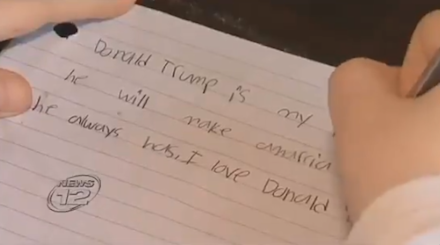 Donald Trump is my
he will make amarria
he always hos, I love Donald
NEWS
12